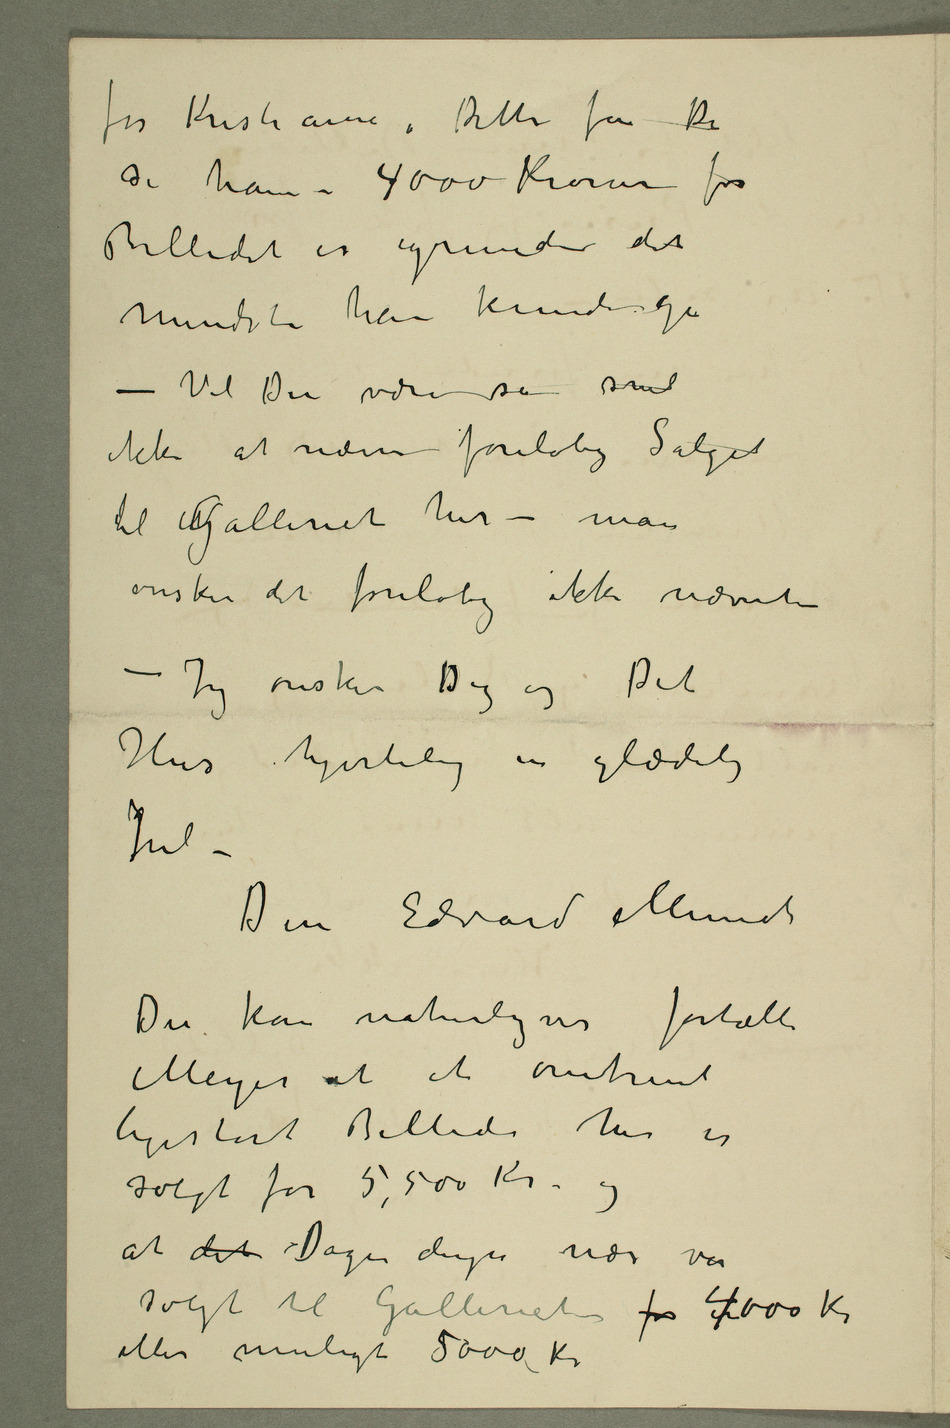 for Kristiania. Dette får De
si ham – 4000 Kroner for
Billedet er igrunden det
mindste han kunde gi
– Vil Du være så snil
ikke at nævne foreløbig Salget
til Galleriet her – man
ønsker det foreløbig ikke nævnt
– Jeg ønsker Dig og Dit
Hus hjertelig en glædelig
Jul –
Din Edvard Munch
Du kan naturligvis fortælle
Meyer at et omtrent
ligestort Billede her er
solgt for 5,500 Kr. og
at det Dagen derpå nær var
solgt til Galleriet for 4000 Kr
eller muligt 5000 Kr